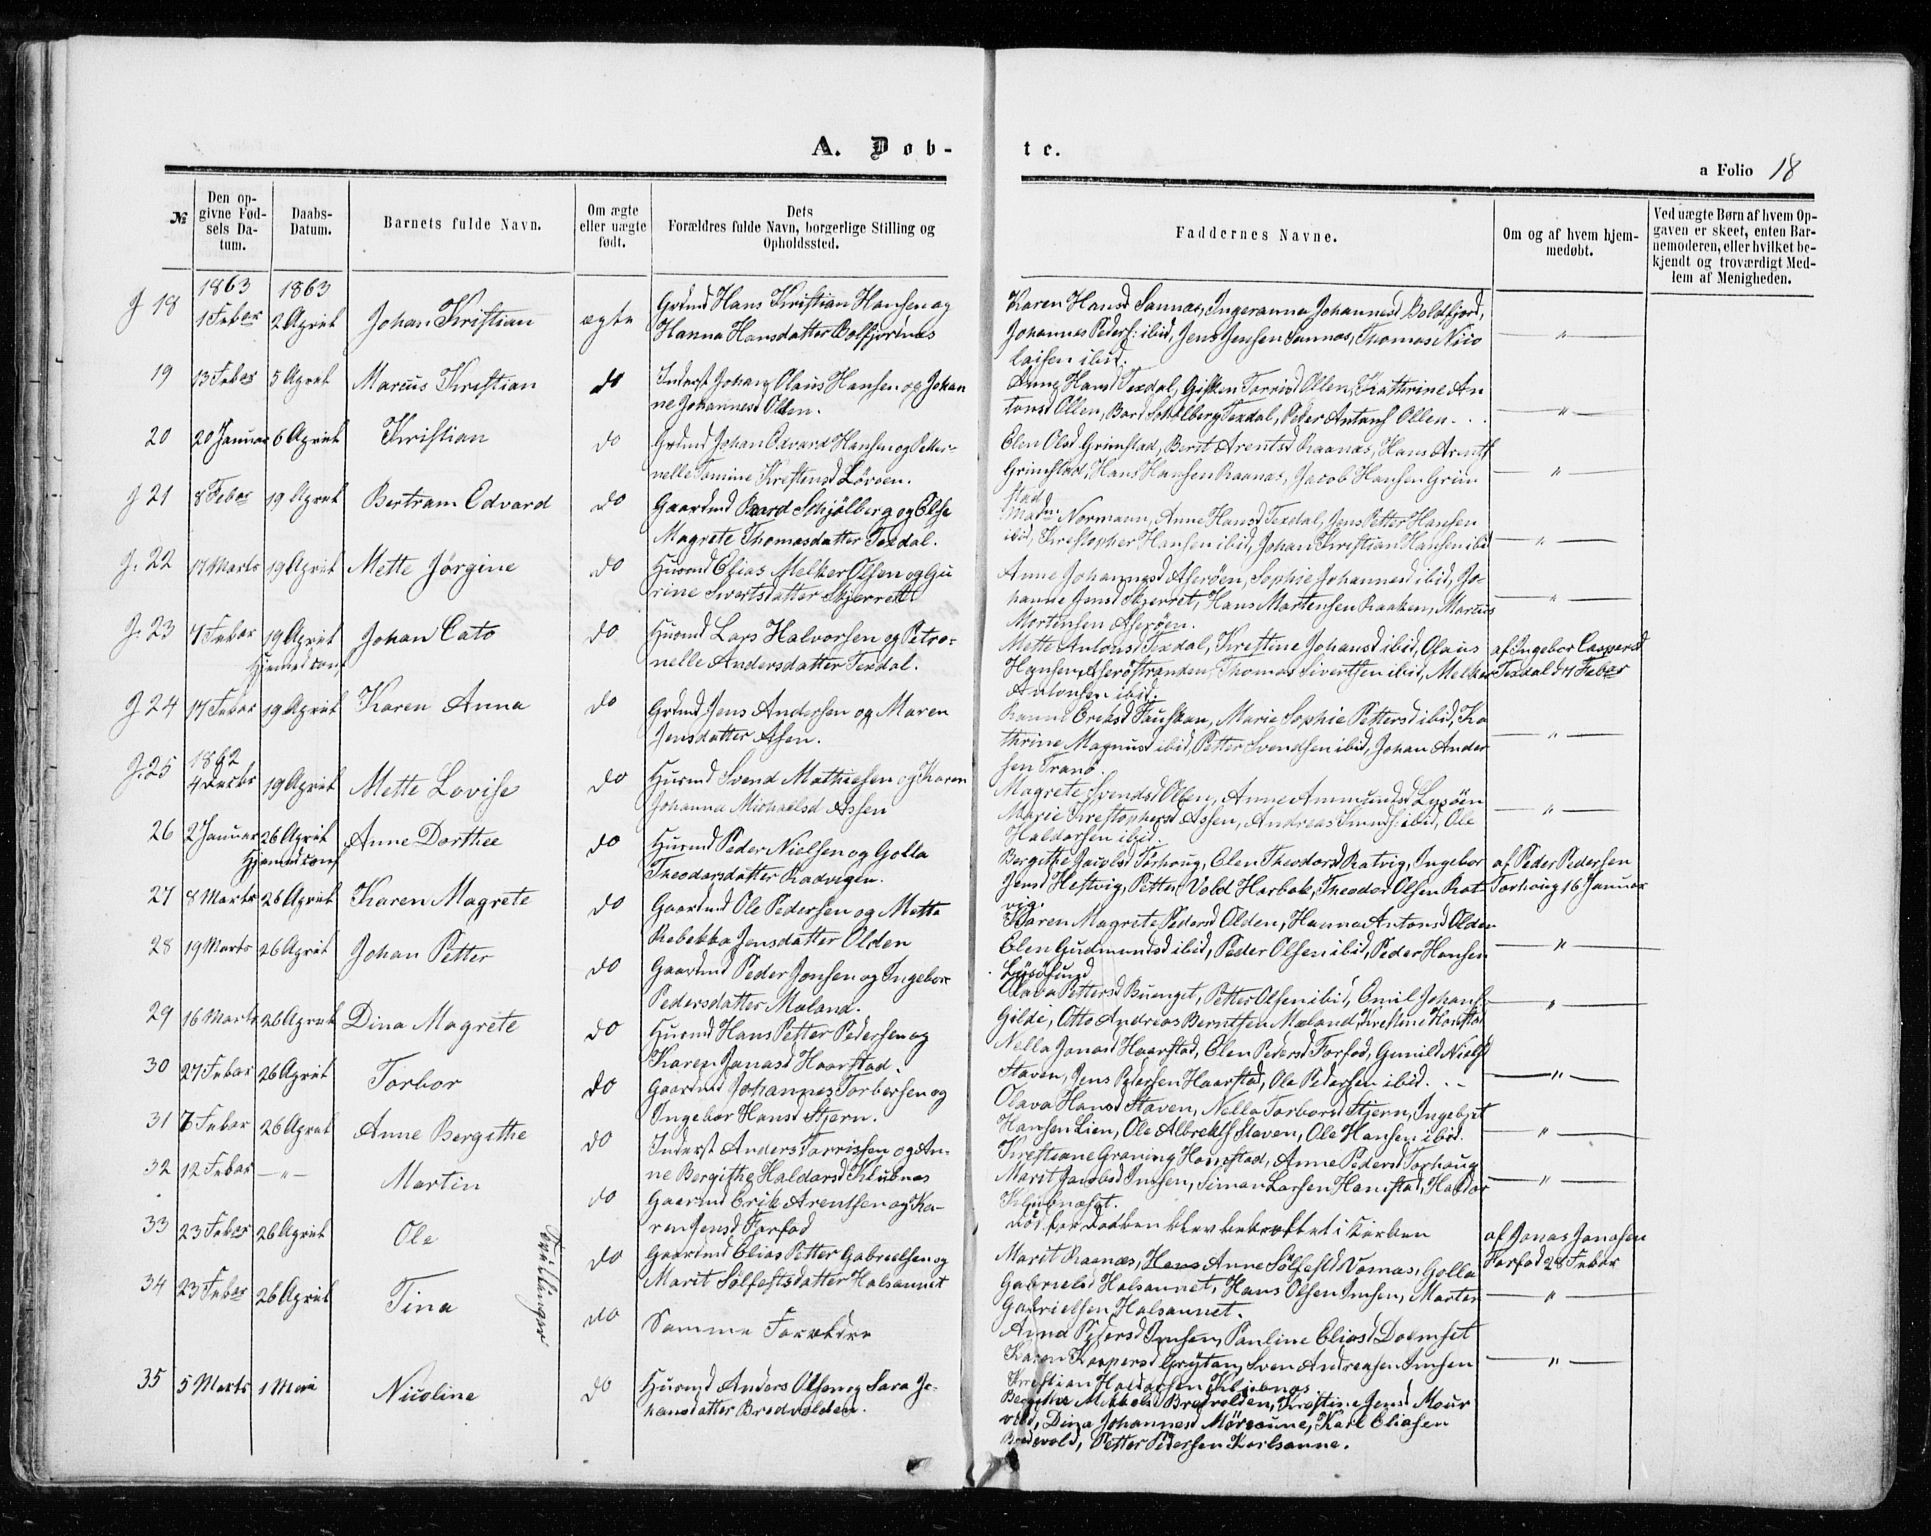 A. Døb-
te.
a Folio 18
№
Den op-
givne Fød-
sels Da-
tum.
Daabs-
Datum.
Barnets fulde Navn.
Om ægte
eller uægte
født.
Dets
Forældres fulde Navn, borgerlige Stilling og
Opholdssted.
Faddernes Navne.
Om og af hvem hjem-
medøbt.
Ved uægte Børn af hvem Op-
gaven er skeet, enten Bar-
nemoderen, eller hvilket be-
kjendt og troværdigt Med-
lem af Menigheden.
1863 1863
18 1 Febar 2 April Johan Kristian ægte Grdmd Hans Kristian Hansen og
Hanna Hansdatter Bolfjordnæs
Karen Hansd Sannæs, Ingeranna Johannesd Boldfjord,
Johannes Peders: ibid, Jens Jensen Sannæs, Thomas Nico
laisen ibid.
19 13 Febar 5 April Marcus Kristian do Inderst Johan Olaus Hansen og Johan
ne Johannesd Olden.
Anne Hansd Texdal, Gisken Torrisd Ollen, Kathrine An
tonsd Ollen, Bård Schjølberg Texdal, Peder Antons Ollen
20 20 Januar 6 April Kristian do Grdmd Johan Edvard Hansen og Petter-
nelle Tomine Kristensd Lørøen.
Elen Olsd Grimstad, Berit Arentsd Raanæs, Hans Arents
Grimstad, Hans Hansen Raanæs, Jacob Hansen Grim
stad
J 21 8 Febar 19 April Bertram Edvard do Gaardmd Baard Schjölberg og Else
Magrete Thomasdatter Texdal.
Normann, Anne Hansd Texdal, Jens Petter Hansen
ibid, Kristopher Hansen ibid, Johan Kristian Hansen ibid
J. 22 17 Marts 19 April Mette Jørgine do Husmd Elias Melker Olsen og Gu
rine Sivertsdatter Skjerrett
Anne Johannesd Aserøen, Sophie Johannesd ibid, Jo-
hanne Jensd Skjerret, Hans Martensen Raaken, Marcus
Mortensen Aserøen.
J. 23 7 Febar 19 April Johan Cato do Husmd Lars Halvorsen og Petro-
Hjemed conf nelle Andersdatter Texdal.
Mette Antonsd Texdal, Kristine Johansd ibid, Olaus
Hansen Aserøstranden, Thomas Sivertsen ibid, Melker
Antonsen ibid.
af Ingebor Caspersd
Texdal d 7 Febar
J 24 17 Febar 19 April Karen Anna do Grdmd Jens Andersen og Maren
Jensdatter Asen.
Marie Sophie Pettersd ibid, Ka
thrine Magnusd ibid, Petter Svendsen ibid, Johan Ander
sen Tranø.
1862
J. 25 4 Decbr 19 April Mette Lovise do Husmd Svend Mathiesen og Karen
Johanna Michaelsd Assen
Magrete Svendsd Ollen, Anne Ammundsd Lysøen
Marie Kristophersd Assen, Andreas ibid, Ole
Haldorsen ibid.
26 2 Januar 26 April Anne Dorthee do Husmd Peder Nielsen og Golla
Hjemed conf Theodorsdatter Radvigen.
Bergithe Jacobsd Torhoug, Elen Theodorsd Ratvig, Ingebor
Jensd Hestvig, Petter Vold Harbak, Theodor Olsen Rat-
vig.
af Peder Pedersen
Torhoug 16 Januar
27 8 Marts 26 April Karen Magrete do Gaardmd Ole Pedersen og Mette
Rebekka Jensdatter Olden
Karen Magrete Pedersd Olden, Hanna Antonsd Olden
Elen Gudmundsd ibid, Peder Olsen ibid, Peder Hansen
Lysøsund
28 19 Marts 26 April Johan Petter do Gaardmd Peder Jonsen og Ingebor
Pedersdatter Mæland.
Olava Pettersd Buenget, Petter Olsen ibid, Emil Johans
Gilde, Otto Andreas Berntsen Mæland, Kristine
29 16 Marts 26 April Dina Magrete do Husmd Hans Petter Pedersen og
Karen Jonasd Haarstad.
Nella Jonasd Haarstad, Elen Pedersd Forfod, Gunild Nielsd
Staven, Jens Pedersen Haarstad, Ole Pedersen ibid.
30 27 Febar 26 April Torbor do Gaardmd Johannes Torbersen og
Ingebor Hansd Stjern.
Olava Hansd Staven, Nella Torborsd Stjern, Ingebret
Hansen Lien, Ole Albrektsd Staven, Ole Hansen ibid.
31 7 Febar 26 April Anne Bergithe do Inderst Anders Torrissen og An-
ne Bergithe Haldorsd Klubnæs
Kristiane Graning Hamstad, Anne Pedersd Torhoug
Marit Jacobsd Imsen, Simon Larsen Hamstad, Haldor
Kljubnæset.
32 12 Febar —„— Martin do Gaardmd Erik Arentsen og Ka-
ren Jensd Forfod
Døs før Daaben blev bekræftet i Kirken
af Jonas Jonasen
Forfod 28 Febar
33 23 Febar 26 April Ole do Gaardmd Elias Petter Gabrielsen og
Marit Sølfestsdatter Halsaunet
Marit Raanæs, Anne Sølfestd Vomas, Golla
Gabrielsd Halsaunet, Hans Olsen Imsen, Morten
Gabrielsen Halsaunet.
Tvillinger
34 23 Febar 26 April Tina do Samme Forældre
Anna Pedersd Imsen, Pauline Eliasd Doemset
Karen Kaspersd Gryten, Sven Andreasen Imsen
Kristian Haldorsen Kljubnæs
35 5 Marts 1 Mai Nicoline do Husmd Anders Olsen og Sara Jo-
hansdatter Bredvolden.
Bergitha Mikkelsd Bredvolden, Kristine Jensd Mour
vold, Dina Johannesd Mørreaune, Karl Eliasen
Bredvold, Petter Pedersen Karlsaune.